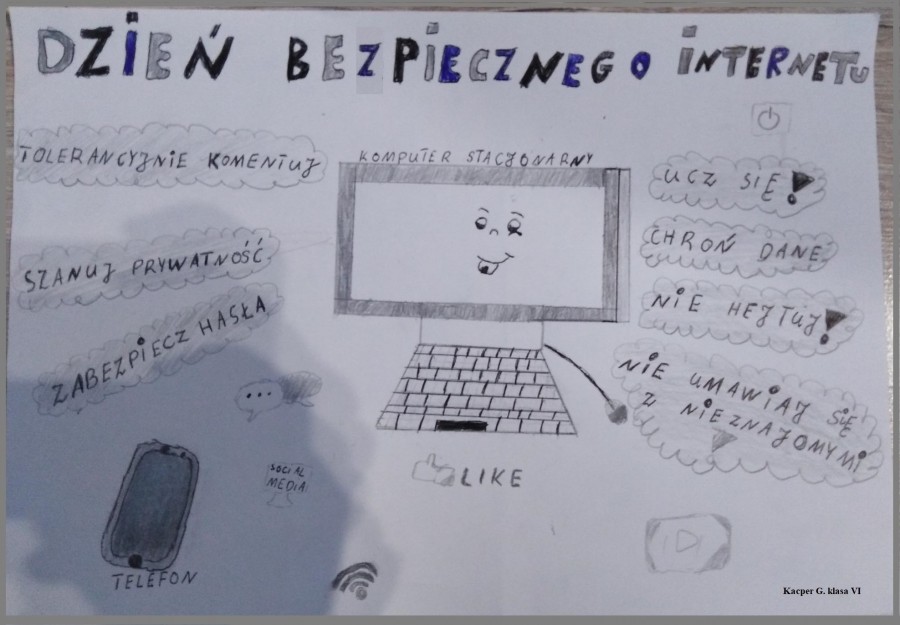 DZIEŃ BEZPIECZNEGO INTERNETU
TOLERANCYJNIE KOMENTUJ
SZANUJ PRYWATNOŚĆ
ZABEZPIECZ HASŁA
KOMPUTER STACJONARNY
UCZ SIĘ!
CHROŃ DANE
NIE HEJTUJ!
NIE UMAWIAJ SIĘ
Z NIEZNAJOMYMI
LIKE
SOCIAL
MEDIA
TELEFON
Kacper G. klasa VI